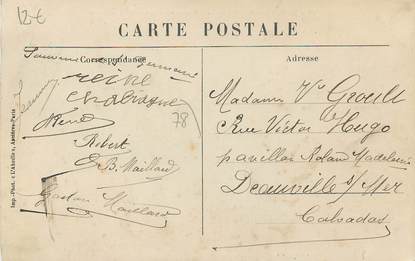 12€
CARTE POSTALE
Correspondance
Adresse
Souvenir de
reine
René
78
Robert
B. Maillard
Gaston Maillard
Madame Vve Groult
Rue Victor Hugo
pavillon Roland Madeleine
Deauville s/ Mer
Calvados
Imp.-Phot. « L'Abeille », Asnières-Paris